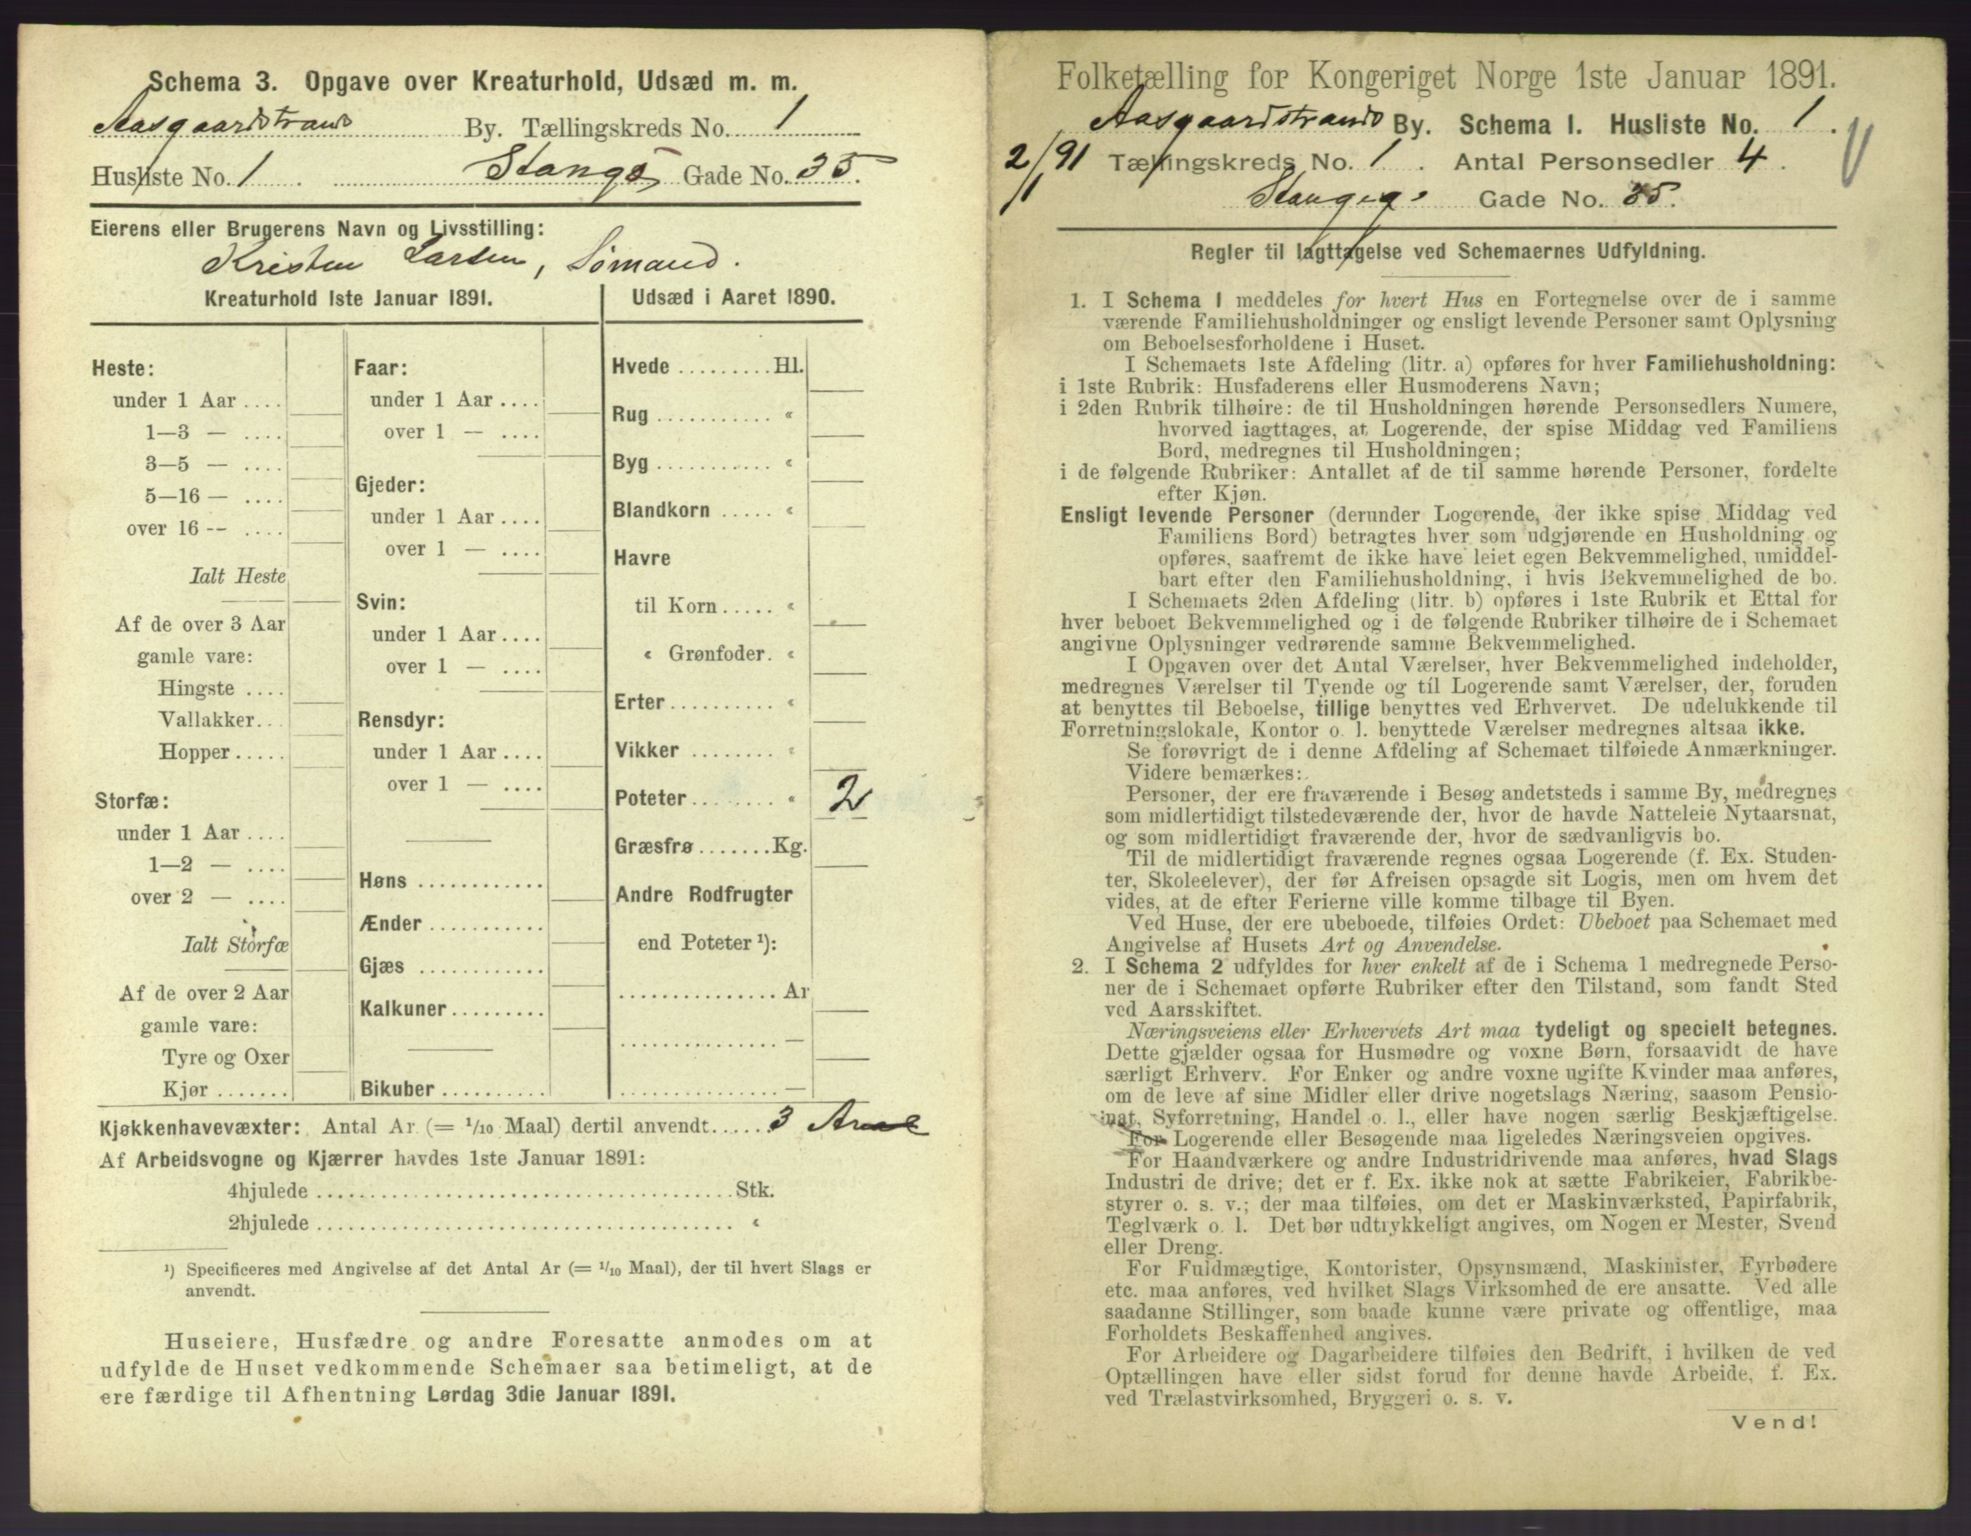 Schema 3. Opgave over Kreaturhold, Udsæd m. m.
Aasgaardstrands By. Tællingskreds No. 1
Husliste No. 1. Stangs Gade No. 35.
Eierens eller Brugerens Navn og Livsstilling:
Kristen Larsen, Sømand.
Kreaturhold 1ste Januar 1891.
Heste:
under 1 Aar ....
1—3 — ....
3—5 — ....
5—16 — ....
over 16 -- ....
Ialt Heste
Af de over 3 Aar
gamle vare:
Hingste ....
Vallakker...
Hopper.....
Storfæ:
under 1 Aar ....
1—2 — ....
over 2 — ....
Ialt Storfæ
Af de over 2 Aar
gamle vare:
Tyre og Oxer
Kjør .......
Faar:
under 1 Aar ....
over 1 — ....
Gjeder:
under 1 Aar ....
over 1 — ....
Svin:
under 1 Aar ....
over 1 — ....
Rensdyr:
under 1 Aar ....
over 1 — ....
Høns ............
Ænder ...........
Gjæs ............
Kalkuner.........
Bikuber..........
Udsæd i Aaret 1890.
Hvede .........Hl.
Rug ........... «
Byg ........... «
Blandkorn ..... «
Havre
til Korn ..... «
« Grønfoder. «
Erter.......... «
Vikker ........ «
Poteter........ « 2
Græsfrø .......Kg.
Andre Rodfrugter
end Poteter ¹):
............... Ar
............... —
............... —
Kjøkkenhavevæxter: Antal Ar (= 1/10 Maal) dertil anvendt...... 3 Ar
Af Arbeidsvogne og Kjærrer havdes 1ste Januar 1891:
4hjulede ........................................Stk.
2hjulede ........................................ «
¹) Specificeres med Angivelse af det Antal Ar (= 1/10 Maal), der til hvert Slags er
anvendt.
Huseiere, Husfædre og andre Foresatte anmodes om at
udfylde de Huset vedkommende Schemaer saa betimeligt, at de
ere færdige til Afhentning Lørdag 3die Januar 1891.
Folketælling for Kongeriget Norge 1ste Januar 1891.
Aasgaardstrands By. Schema I. Husliste No. 1.
2/1 91 Tællingskreds No. 1. Antal Personsedler 4.
Gade No. 35.
Regler til Iagttagelse ved Schemaernes Udfyldning.
1. I Schema 1 meddeles for hvert Hus en Fortegnelse over de i samme
værende Familiehusholdninger og ensligt levende Personer samt Oplysning
om Beboelsesforholdene i Huset.
I Schemaets 1ste Afdeling (litr. a) opføres for hver Familiehusholdning:
i 1ste Rubrik: Husfaderens eller Husmoderens Navn;
i 2den Rubrik tilhøire: de til Husholdningen hørende Personsedlers Numere,
hvorved iagttages, at Logerende, der spise Middag ved Familiens
Bord, medregnes til Husholdningen;
i de følgende Rubriker: Antallet af de til samme hørende Personer, fordelte
efter Kjøn.
Ensligt levende Personer (derunder Logerende, der ikke spise Middag ved
Familiens Bord) betragtes hver som udgjørende en Husholdning og
opføres, saafremt de ikke have leiet egen Bekvemmelighed, umiddel-
bart efter den Familiehusholdning, i hvis Bekvemmelighed de bo.
I Schemaets 2den Afdeling (litr. b) opføres i 1ste Rubrik et Ettal for
hver beboet Bekvemmelighed og i de følgende Rubriker tilhøire de i Schemaet
angivne Oplysninger vedrørende samme Bekvemmelighed.
I Opgaven over det Antal Værelser, hver Bekvemmelighed indeholder,
medregnes Værelser til Tyende og til Logerende samt Værelser, der, foruden
at benyttes til Beboelse, tillige benyttes ved Erhvervet. De udelukkende til
Forretningslokale, Kontor o. l. benyttede Værelser medregnes altsaa ikke.
Se forøvrigt de i denne Afdeling af Schemaet tilføiede Anmærkninger.
Videre bemærkes:
Personer, der ere fraværende i Besøg andetsteds i samme By, medregnes
som midlertidigt tilstedeværende der, hvor de havde Natteleie Nytaarsnat,
og som midlertidigt fraværende der, hvor de sædvanligvis bo.
Til de midlertidigt fraværende regnes ogsaa Logerende (f. Ex. Studen-
ter, Skoleelever), der før Afreisen opsagde sit Logis, men om hvem det
vides, at de efter Ferierne ville komme tilbage til Byen.
Ved Huse, der ere ubeboede, tilføies Ordet: Ubeboet paa Schemaet med
Angivelse af Husets Art og Anvendelse.
2. I Schema 2 udfyldes for hver enkelt af de i Schema 1 medregnede Perso-
ner de i Schemaet opførte Rubriker efter den Tilstand, som fandt Sted
ved Aarsskiftet.
Næringsveiens eller Erhvervets Art maa tydeligt og specielt betegnes.
Dette gjælder ogsaa for Husmødre og voxne Børn, forsaavidt de have
særligt Erhverv. For Enker og andre voxne ugifte Kvinder maa anføres,
om de leve af sine Midler eller drive nogetslags Næring, saasom Pensio-
nat, Syforretning, Handel o. l., eller have nogen særlig Beskjæftigelse.
For Logerende eller Besøgende maa ligeledes Næringsveien opgives.
For Haandværkere og andre Industridrivende maa anføres, hvad Slags
Industri de drive; det er f. Ex. ikke nok at sætte Fabrikeier, Fabrikbe-
styrer o. s. v.; der maa tilføies, om det er Maskinværksted, Papirfabrik,
Teglværk o. l. Det bør udtrykkeligt angives, om Nogen er Mester, Svend
eller Dreng.
For Fuldmægtige, Kontorister, Opsynsmænd, Maskinister, Fyrbødere
etc. maa anføres, ved hvilket Slags Virksomhed de ere ansatte. Ved alle
saadanne Stillinger, som baade kunne være private og offentlige, maa
Forholdets Beskaffenhed angives.
For Arbeidere og Dagarbeidere tilføies den Bedrift, i hvilken de ved
Optællingen have eller sidst forud for denne havde Arbeide, f. Ex.
ved Trælastvirksomhed, Bryggeri o. s. v.
Vend!